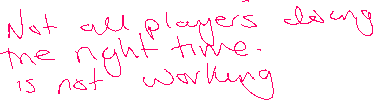 Not all players doing
the right time.
is not working